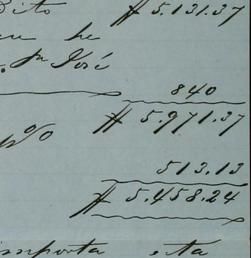 dito $ 5.131.37
he
Dn José
840
$ 5.971.37
p%
513.13
$ 5.458.24
importa esta